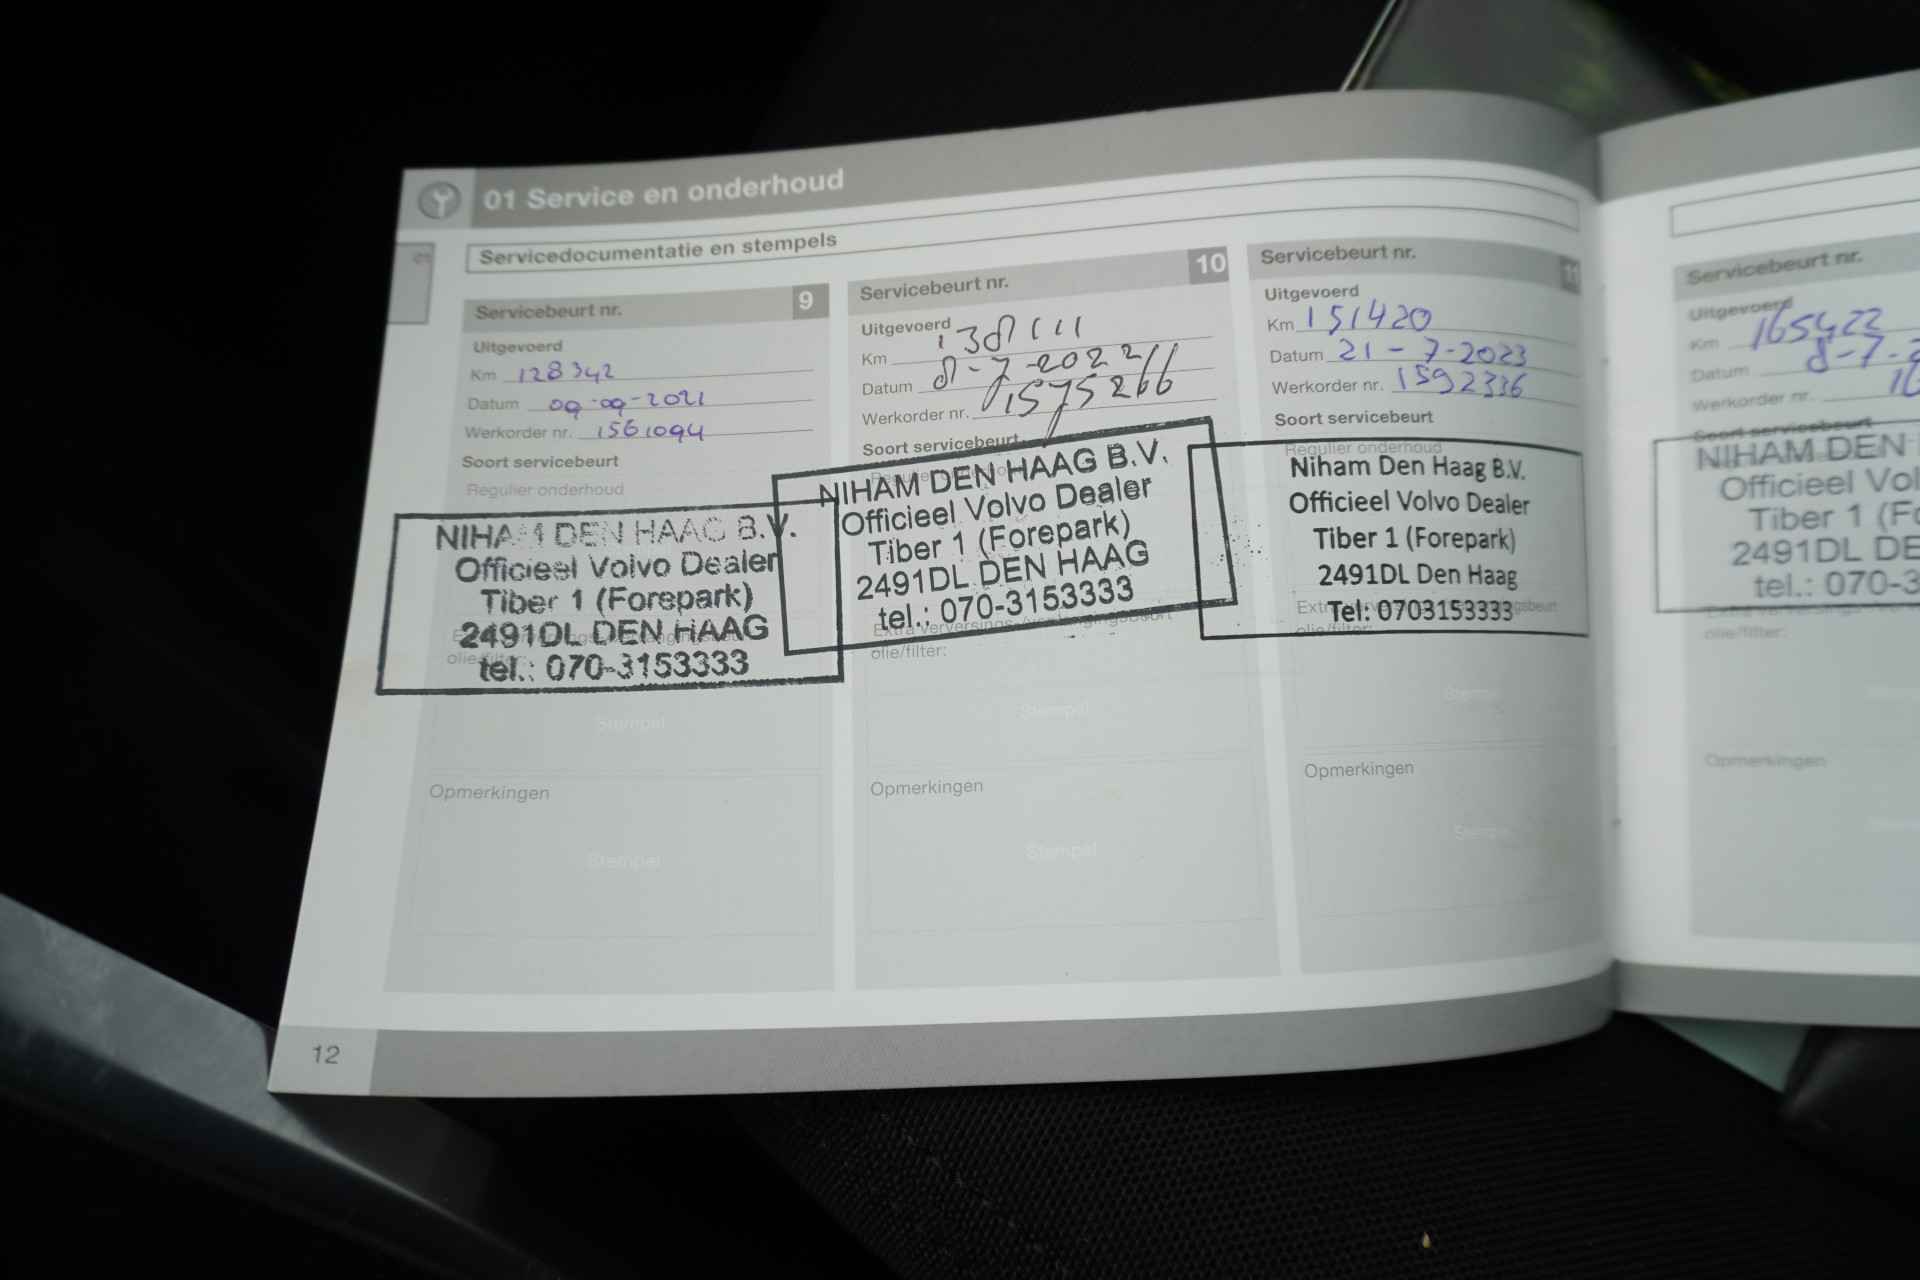 01 Service en onderhoud
01
Servicedocumentatie en stempels
Servicebeurt nr. 9
Uitgevoerd
Km 128342
Datum 09-09-2021
Werkorder nr. 1561094
Soort servicebeurt
Regulier onderhoud
NIHAM DEN HAAG B.V.
Officieel Volvo Dealer
Tiber 1 (Forepark)
2491DL DEN HAAG
olie/filter:
tel.: 070-3153333
Stempel
Opmerkingen
Stempel
Servicebeurt nr. 10
Uitgevoerd
Km 138111
Datum 8-7-2022
Werkorder nr. 1575266
Soort servicebeurt
Regulier onderhoud
NIHAM DEN HAAG B.V.
Officieel Volvo Dealer
Tiber 1 (Forepark)
2491DL DEN HAAG
tel.: 070-3153333
Extra verversings-/vervangingsbeurt
olie/filter:
Stempel
Opmerkingen
Stempel
Servicebeurt nr. 11
Uitgevoerd
Km 151420
Datum 21-7-2023
Werkorder nr. 1592336
Soort servicebeurt
Regulier onderhoud
Niham Den Haag B.V.
Officieel Volvo Dealer
Tiber 1 (Forepark)
2491DL Den Haag
Tel: 0703153333
olie/filter:
Stempel
Opmerkingen
Stempel
12
Servicebeurt nr.
Uitgevoerd
Km 165422
Datum 8-7-2
Werkorder nr. 16
Soort servicebeurt
NIHAM DEN
Officieel Vol
Tiber 1 (Fo
2491DL DE
tel.: 070-3
olie/filter:
Opmerkingen